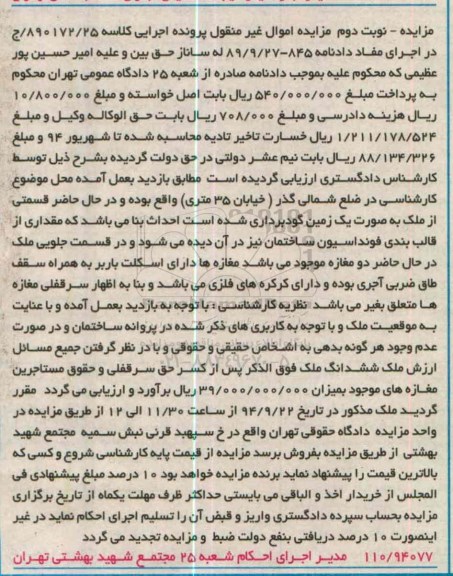 مزایده - نوبت دوم مزایده اموال غیر منقول پرونده اجرایی کلاسه ۸۹۰۱۷۲/۲۵/ج
در اجرای مفاد دادنامه ۸۴۵-۸۹/۹/۲۷ له ساناز حق بین و علیه امیر حسین پور
عظیمی که محکوم علیه بموجب دادنامه صادره از شعبه ۲۵ دادگاه عمومی تهران محکوم
به پرداخت مبلغ ۵۴۰/۰۰۰/۰۰۰ ریال بابت اصل خواسته و مبلغ ۱۰/۸۰۰/۰۰۰
ریال هزینه دادرسی و مبلغ ۷۰۸/۰۰۰ ریال بابت حق الوکاله وکیل و مبلغ
۱/۲۱۱/۱۷۸/۵۲۴ ریال خسارت تاخیر تادیه محاسبه شده تا شهریور ۹۴ و مبلغ
۸۸/۱۳۴/۳۲۶ ریال بابت نیم عشر دولتی در حق دولت گردیده بشرح ذیل توسط
کارشناس دادگستری ارزیابی گردیده است مطابق بازدید بعمل آمده محل موضوع
کارشناسی در ضلع شمالی گذر ( خیابان ۳۵ متری) واقع بوده و در حال حاضر قسمتی
از ملک به صورت یک زمین گودبرداری شده است احداث بنا می باشد که مقداری از
قالب بندی فونداسیون ساختمان نیز در آن دیده می شود و در قسمت جلویی ملک
در حال حاضر دو مغازه موجود می باشد مغازه ها دارای اسکلت باربر به همراه سقف
طاق ضربی آجری بوده و دارای کرکره های فلزی می باشند و بنا به اظهار سرقفلی مغازه
ها متعلق بغیر می باشد نظریه کارشناسی : با توجه به بازدید بعمل آمده و با عنایت
به موقعیت ملک و با توجه به کاربری های ذکر شده در پروانه ساختمان و در صورت
عدم وجود هر گونه بدهی به اشخاص حقیقی و حقوقی و با در نظر گرفتن جمیع مسائل
ارزش ملک ششدانگ ملک فوق الذکر پس از کسر حق سرقفلی و حقوق مستاجرین
مغازه های موجود بمیزان ۳۹/۰۰۰/۰۰۰/۰۰۰ ریال برآورد و ارزیابی می گردد مقرر
گردید ملک مذکور در تاریخ ۹۴/۹/۲۲ از ساعت ۱۱/۳۰ الی ۱۲ از طریق مزایده در
واحد مزایده دادگاه حقوقی تهران واقع در خ سپهبد قرنی نبش سمیه مجتمع شهید
بهشتی از طریق مزایده بفروش برسد مزایده از قیمت پایه کارشناسی شروع و کسی که
بالاترین قیمت را پیشنهاد نماید برنده مزایده خواهد بود ۱۰ درصد مبلغ پیشنهادی فی
المجلس از خریدار اخذ و الباقی می بایستی حداکثر ظرف مهلت یکماه از تاریخ برگزاری
مزایده بحساب سپرده دادگستری واریز و قبض آن را تسلیم اجرای احکام نماید در غیر
اینصورت ۱۰ درصد دریافتی بنفع دولت ضبط و مزایده تجدید می گردد
۱۱۰/۹۴۰۷۷ مدیر اجرای احکام شعبه ۲۵ مجتمع شهید بهشتی تهران